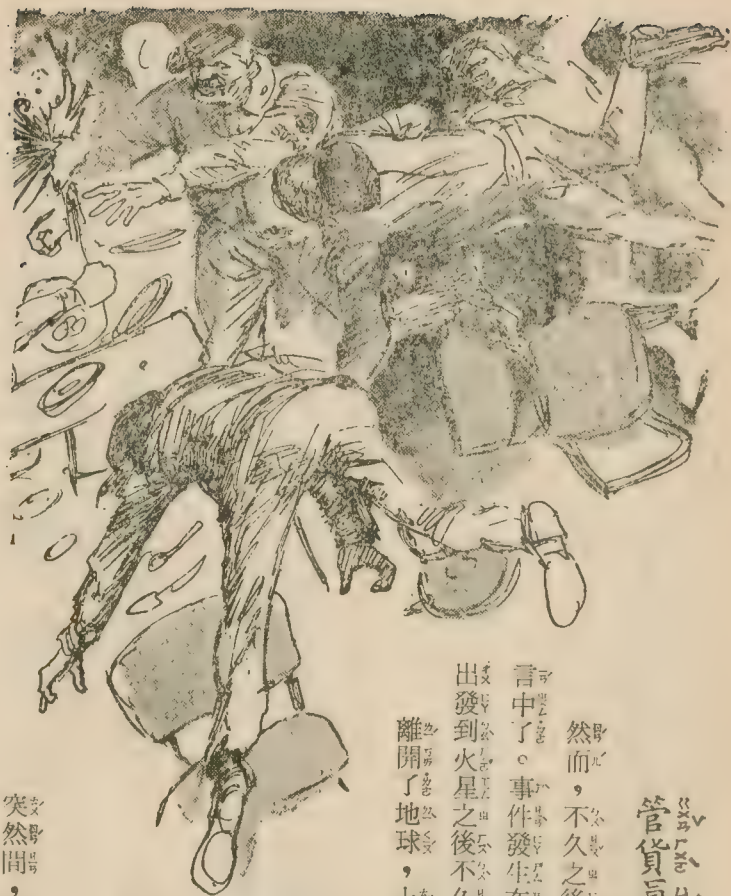 管貨員
然而，不久之後
言中了。事件發生在
出發到火星之後不久
離開了地球，
突然間，